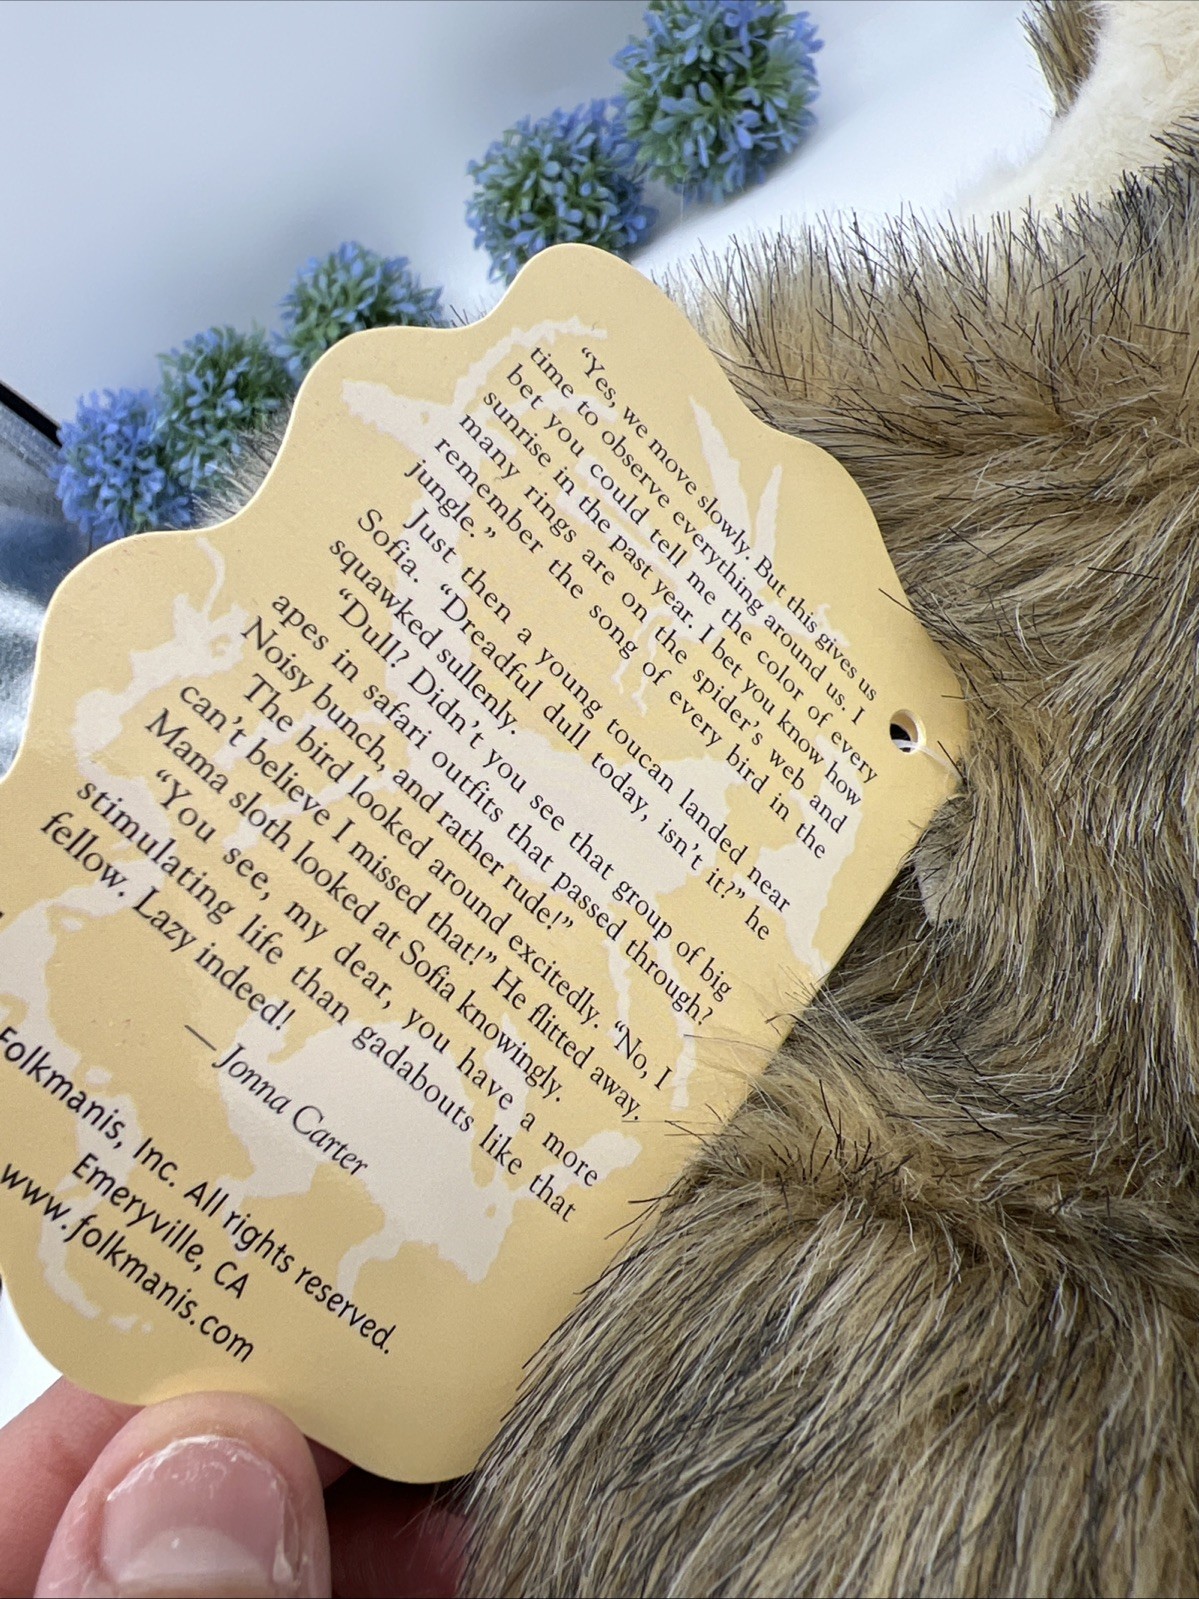 “Yes, we move slowly. But this gives us
time to observe everything around us. I
bet you could tell me the color of every
sunrise in the past year. I bet you know how
many rings are on the spider’s web and
remember the song of every bird in the
jungle.”
Just then a young toucan landed near
Sofia. “Dreadful dull today, isn’t it?” he
squawked sullenly.
“Dull? Didn’t you see that group of big
apes in safari outfits that passed through?
Noisy bunch, and rather rude!”
The bird looked around excitedly. “No, I
can’t believe I missed that!” He flitted away.
Mama sloth looked at Sofia knowingly.
“You see, my dear, you have a more
stimulating life than gadabouts like that
fellow. Lazy indeed!
— Jonna Carter
Folkmanis, Inc. All rights reserved.
Emeryville, CA
www.folkmanis.com